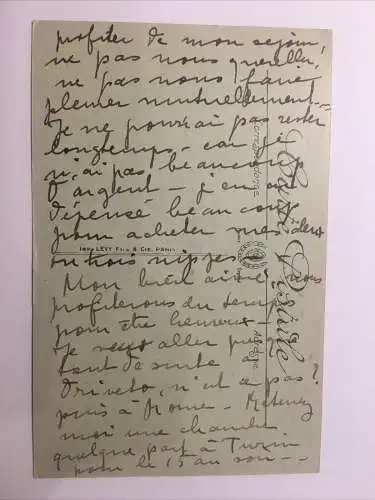 profiter de mon séjour,
ne pas nous quereller,
ne pas nous faire
pleurer mutuellement —
Je ne pourrai pas rester
longtemps — car je
n'ai pas beaucoup
d'argent — j'en ai
dépensé beaucoup
pour acheter mes deux
ou trois nippes
Mon bien aimé, nous
profiterons du temps
pour être heureux —
Je veux aller
tout de suite à
n'est ce pas?
puis à Rome — Retenez
moi une chambre
quelque part à Turin
pour le 15 au soir —
Carte Postale
Correspondance
Adresse
IMP. LEVY FILS & CIE. PARIS